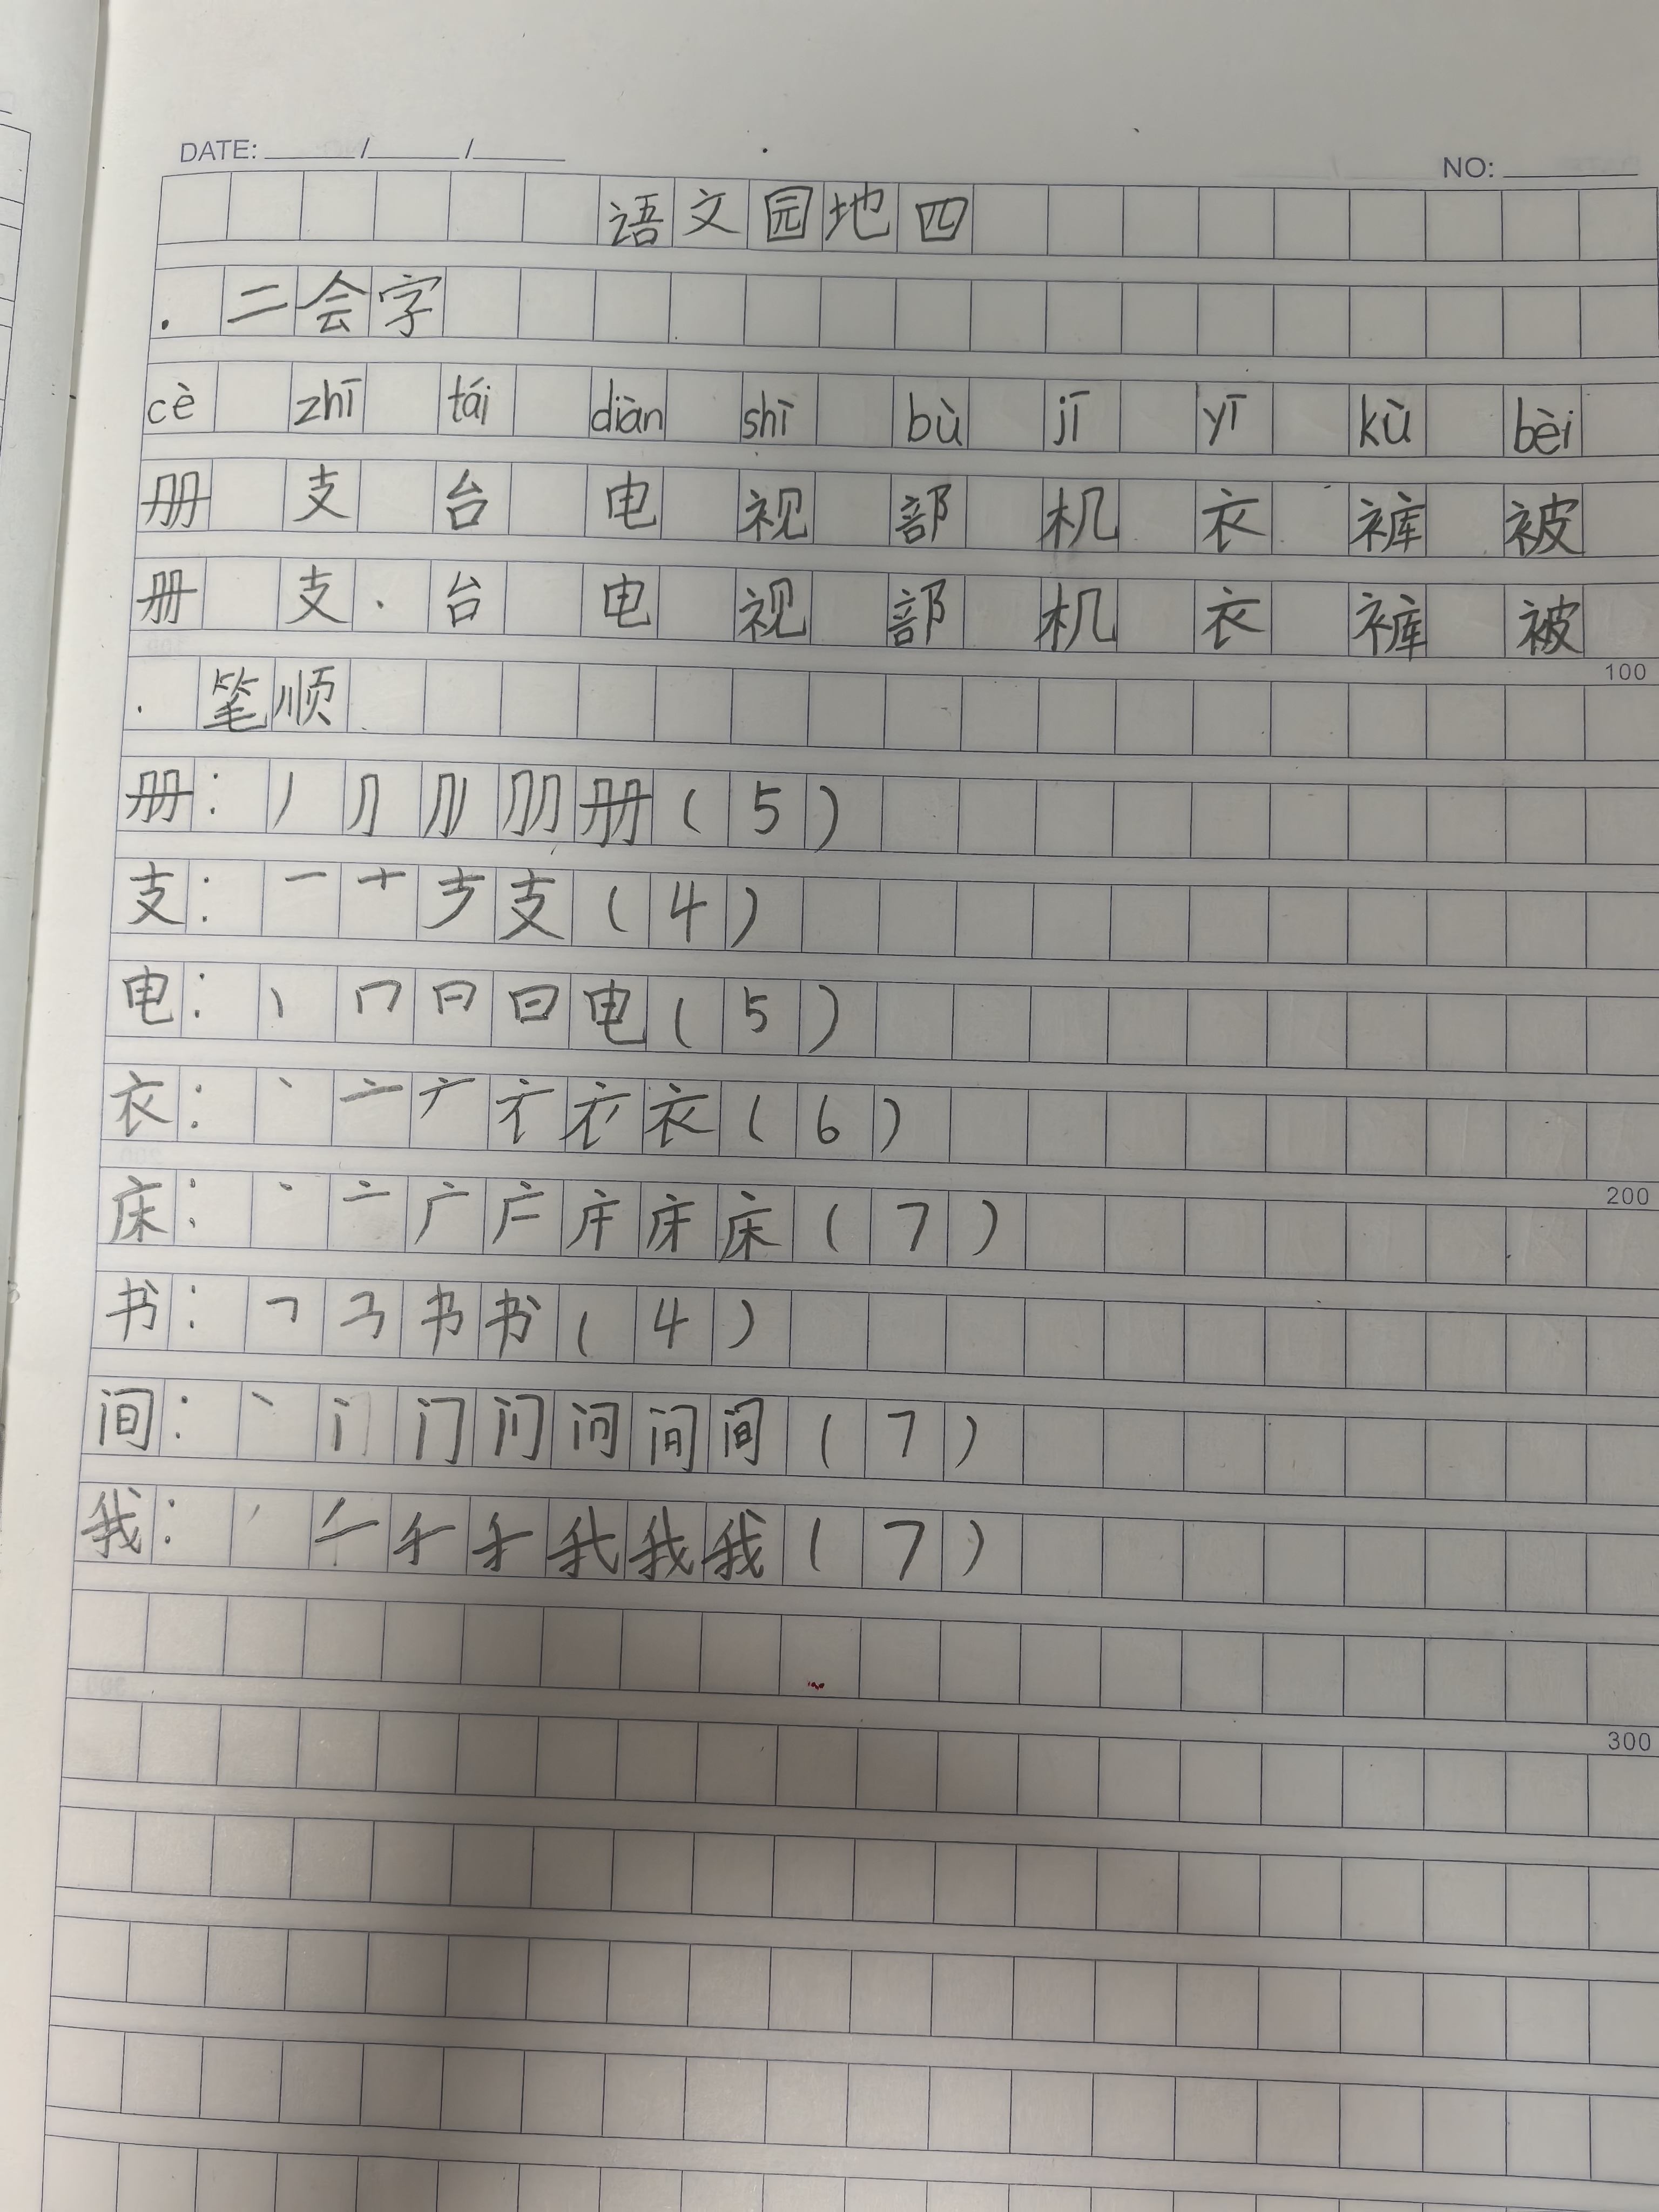 DATE: ____/____/____ NO: ____
语文园地四
. 二会字
cè zhī tái diàn shī bù jī yī kù bèi
册 支 台 电 视 部 机 衣 裤 被
册 支 台 电 视 部 机 衣 裤 被
100
. 笔顺
册: 丿 册 (5)
支: 一 十 支 (4)
电: 丨 冂 日 电 (5)
衣: 丶 亠 衣 (6)
200
床: 丶 亠 广 床 (7)
书: ㇕ 书 (4)
间: 丶 门 问 间 (7)
我: 丿 我 (7)
300